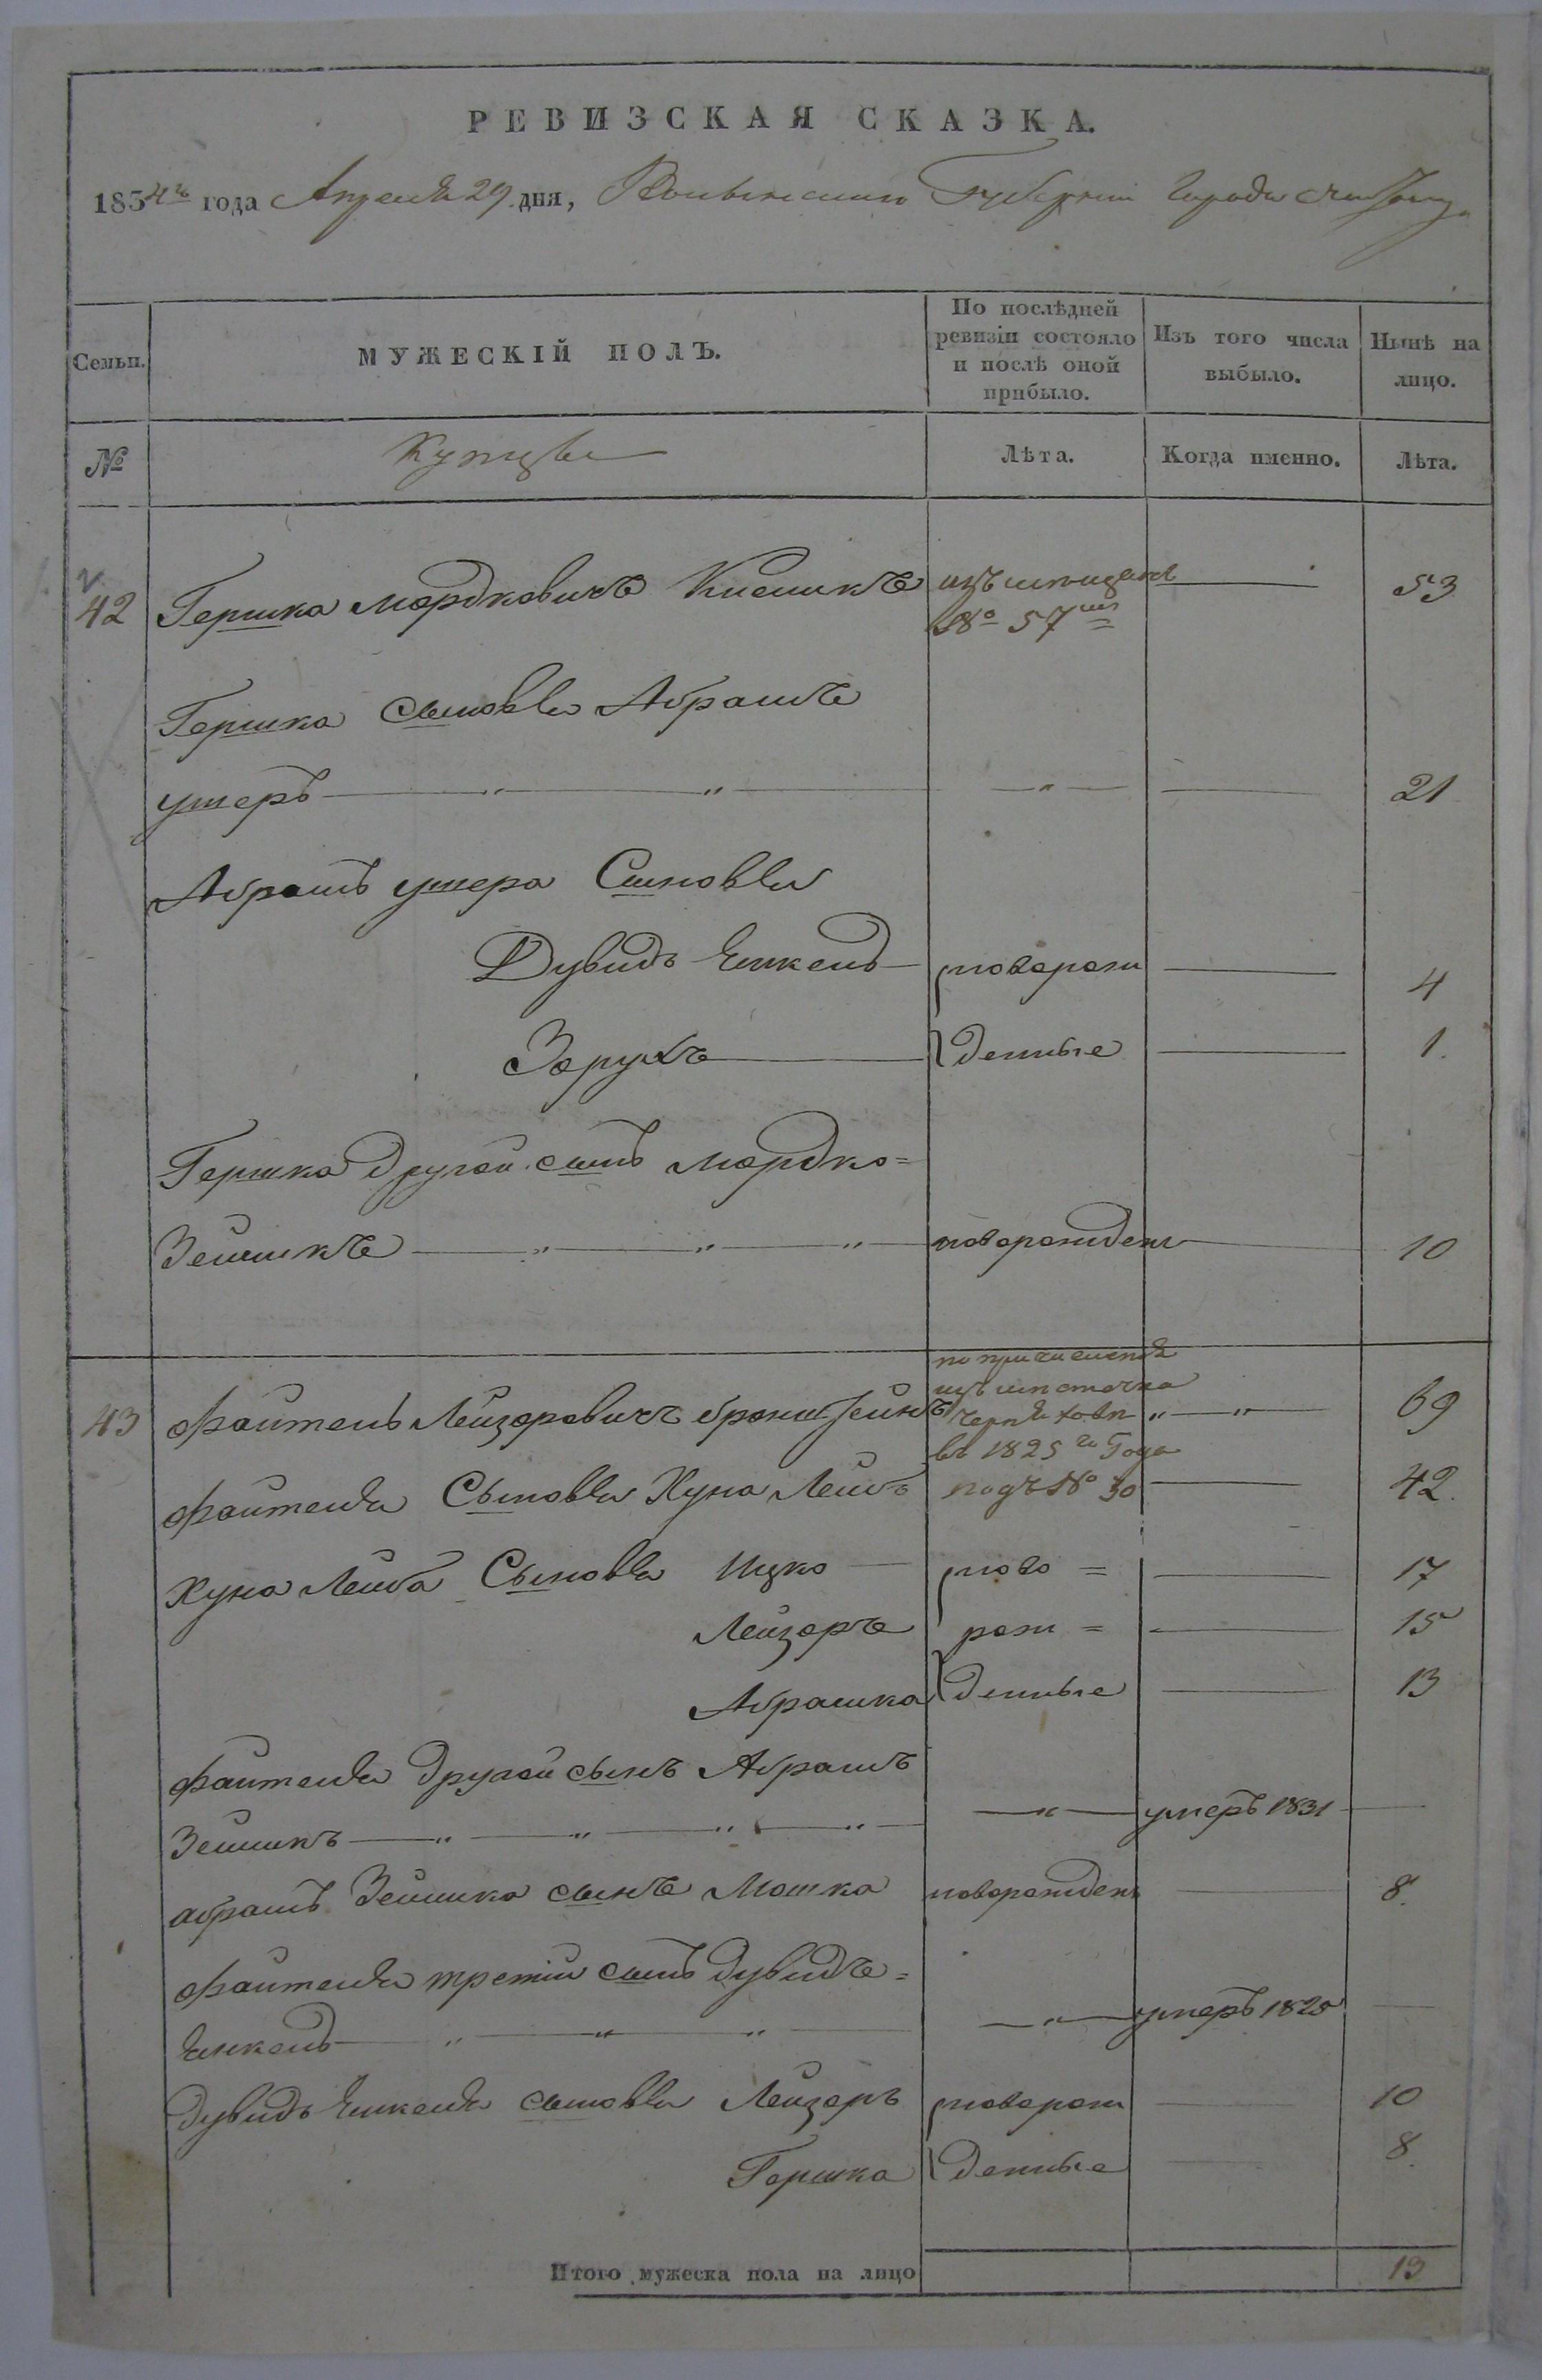 РЕВИЗСКАЯ СКАЗКА.
1834го года Апреля 29 дня, Волынской Губернии Города
Семьи. МУЖЕСКІЙ ПОЛЪ. По послѣдней ревизіи состояло и послѣ оной прибыло. Изъ того числа выбыло. Нынѣ на лицо.
№ Купцы Лѣта. Когда именно. Лѣта.
42 Гершко Мордковичъ изъ мещанъ 53
№ 57
Гершка сыновья Абрамъ
Умеръ — " — " — " — 21
Абрамъ Умера Сыновья
Дувидъ Енкель новорож 4
Зарухъ денные 1.
Гершка другой сынъ Мордко=
Зейликъ — " — " — " новорожденъ 10
по причислении
изъ местечка
43 Файтель Лейзоровичъ " — " 69
въ 1825го Года
Файтеля Сыновья Хуна Лейбъ подъ № 30 42.
Хуна Лейба Сыновья Ицко ново = 17
Лейзоръ рож = 15
Абрамко денные 13
Файтеля другой сынъ Абрамъ
Зейликъ — " — " — " — " — " — умеръ 1831
Абрамъ Зейлика сынъ Мошко новорожденъ 8.
Файтеля третій сынъ Дувидъ=
Енкель — " — " — " — " — умеръ 1825
Дувидъ Енкеля сыновья Лейзоръ новорож 10
Гершко денные 8.
Итого мужеска пола на лицо 13